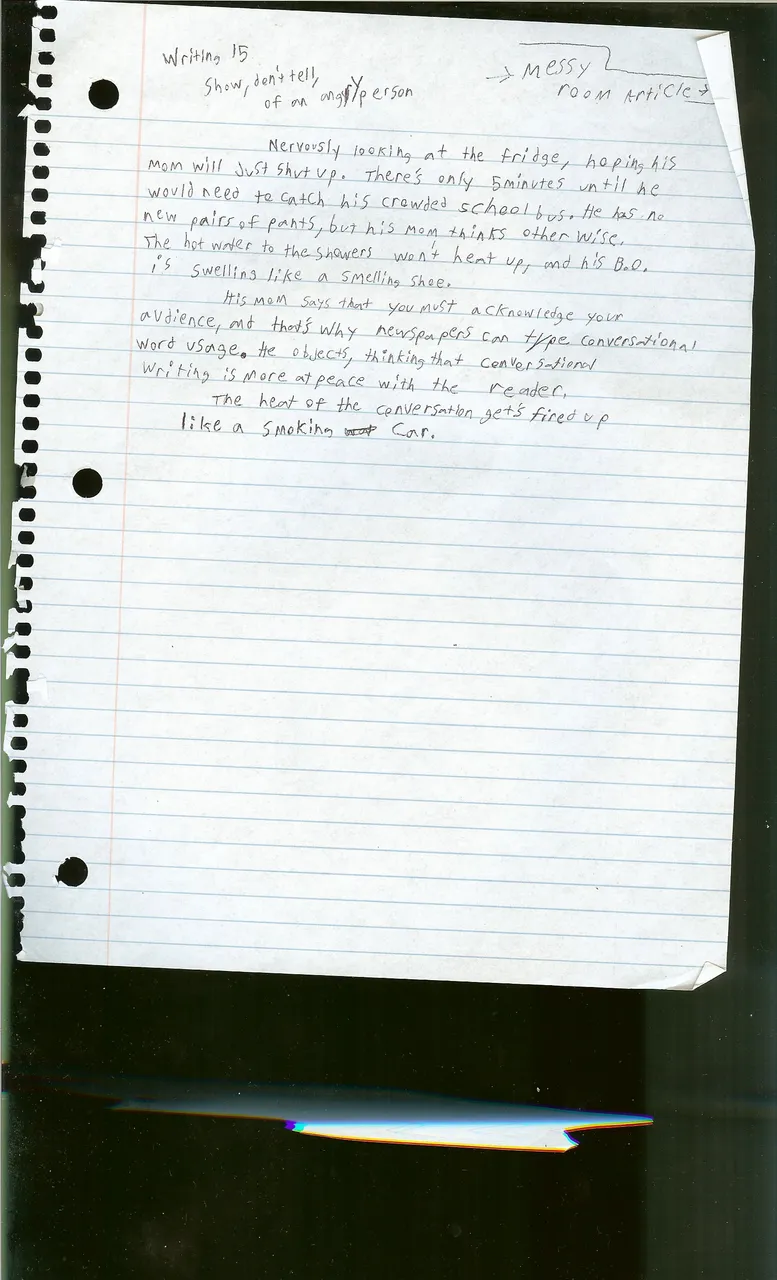 Writing 15
Show, don't tell,
of an angry person
→ Messy
room Article →
Nervously looking at the fridge, hoping his
mom will Just Shut up. There's only 5minutes until he
would need to catch his crowded school bus. He has no
new pairs of pants, but his mom thinks other wise.
The hot water to the showers won't heat up, and his B.O.
i's swelling like a smelling shoe.
His mom says that you must acknowledge your
audience, and that's why newspapers can type conversational
word usage. He objects, thinking that conversational
Writing is more at peace with the reader.
The heat of the conversation get's fired up
like a smoking car.